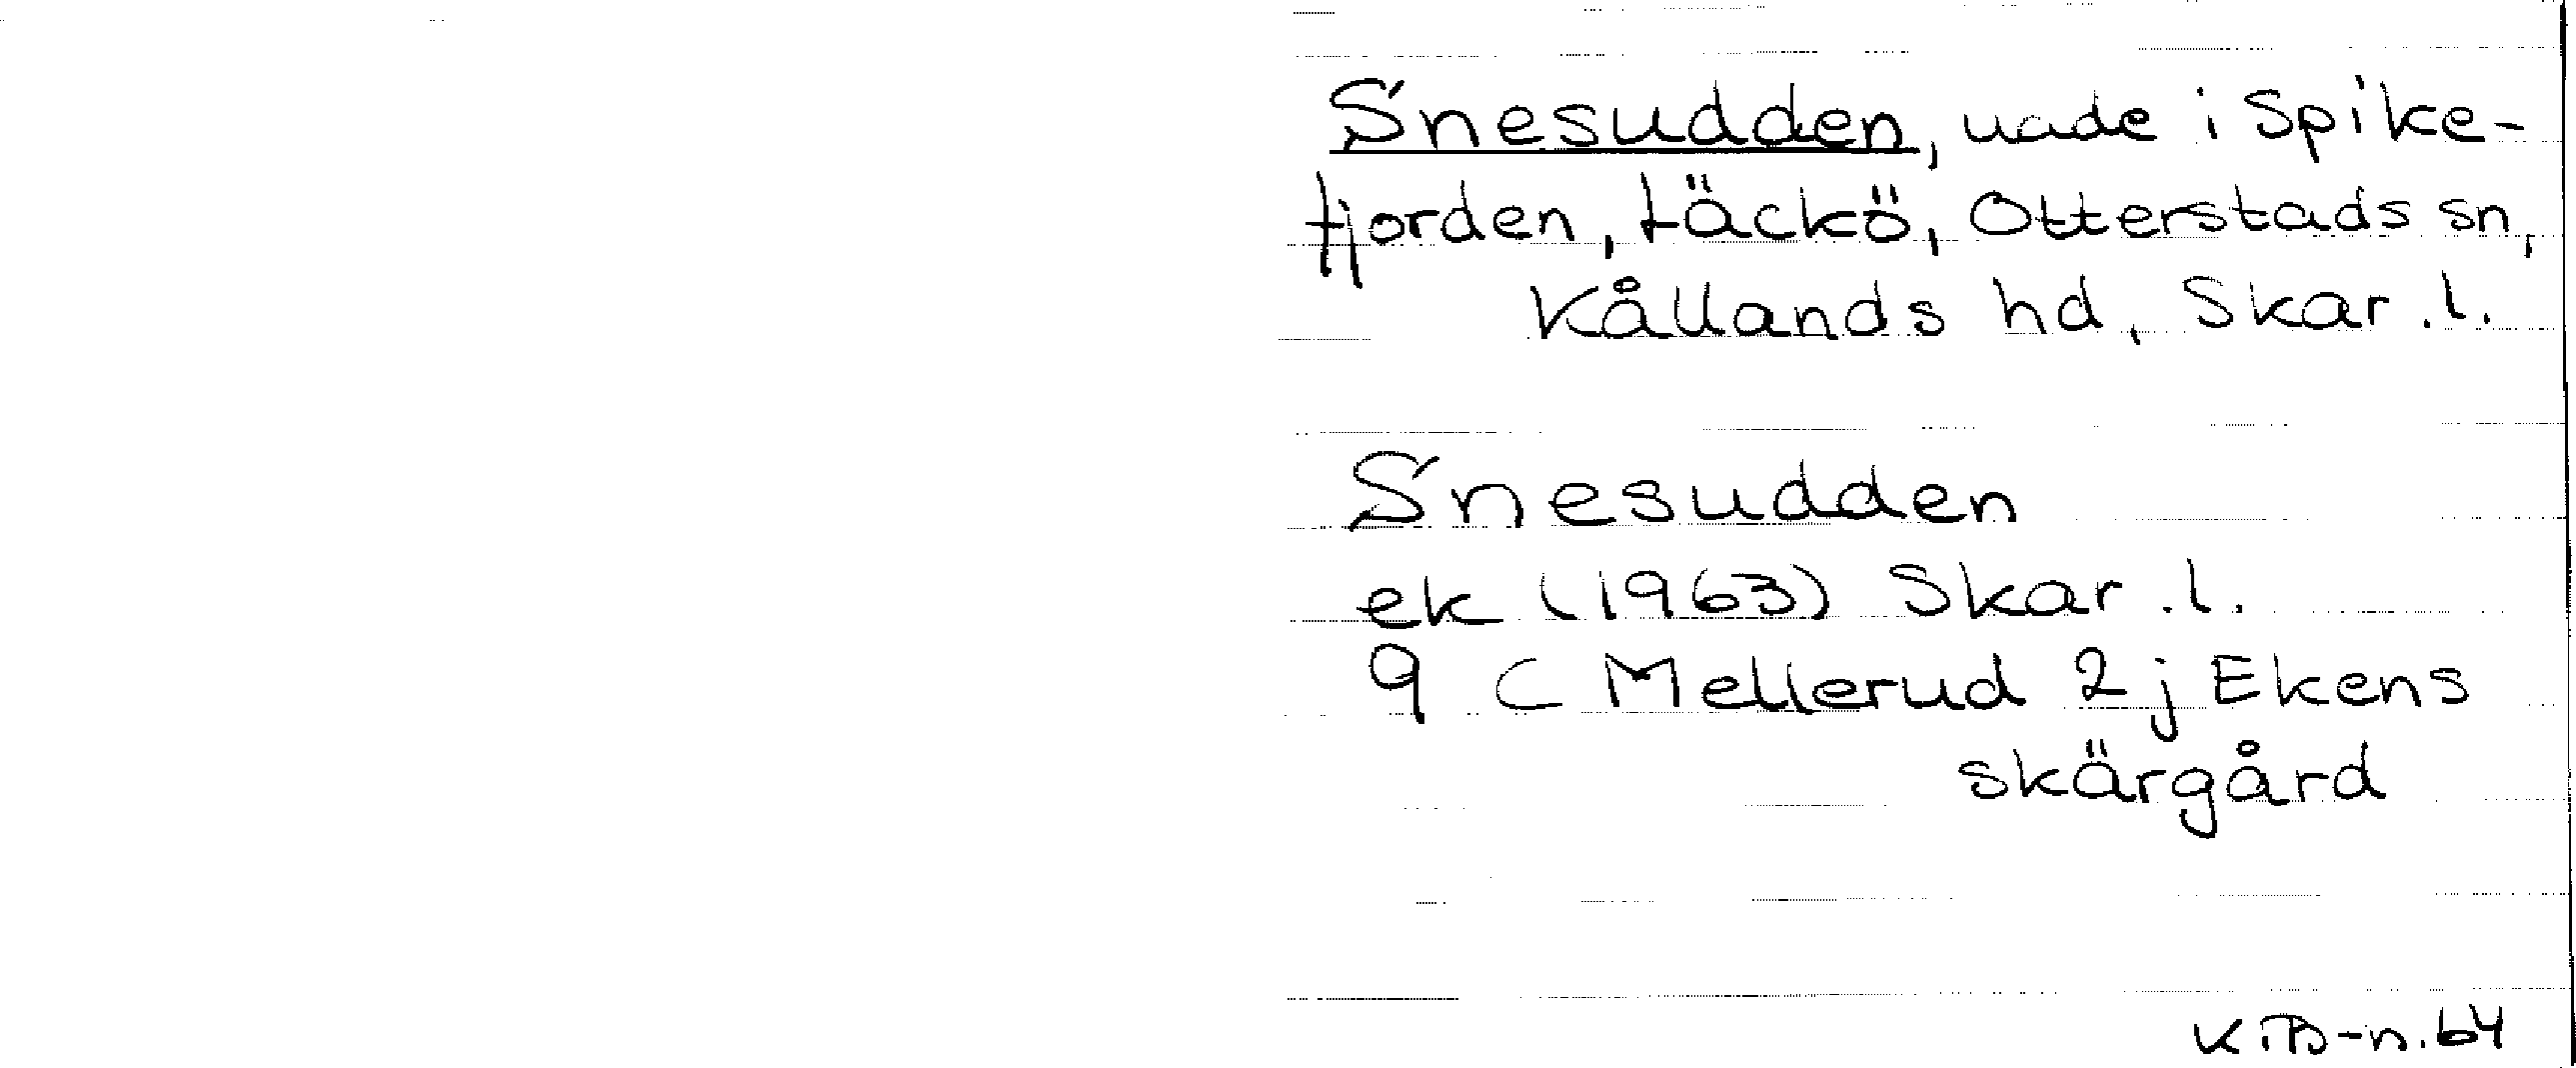 Snesudden, udde i Spike-
fjorden, Läckö, Otterstads sn,
Kållands hd, Skar.l.
Snesudden
ek (1963) Skar.l.
9 C Mellerud 2j Ekens
skärgård